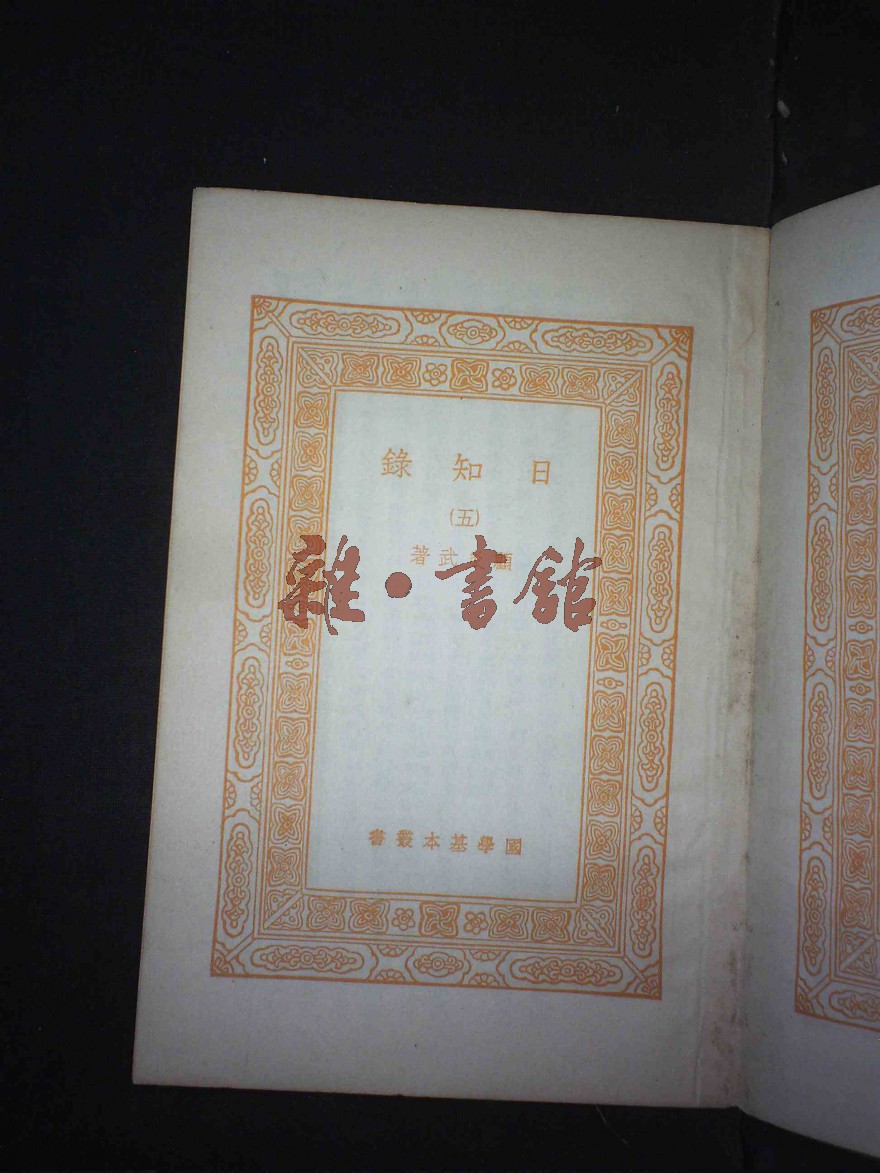 日知錄
(五)
顧炎武著
雜·書館
國學基本叢書